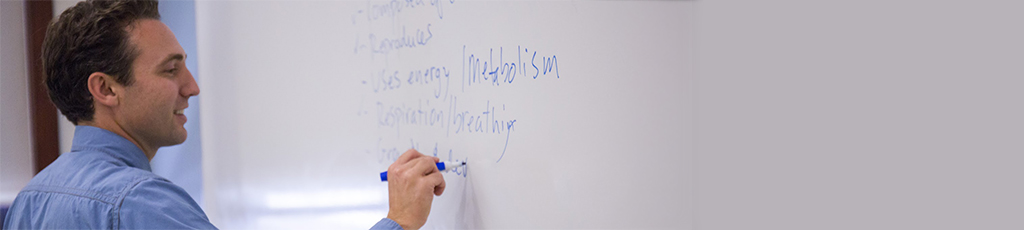 - Composed of
- Reproduces
- Uses energy/metabolism
- Respiration/breathing